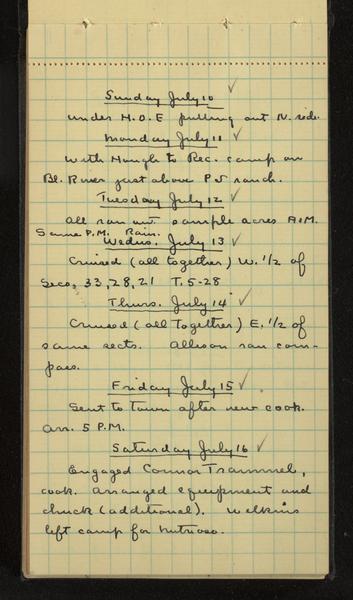 Sunday July 10
Under H.O.E putting out N. side.
Monday July 11
With Hough to Rec. camp on
Bl. River just above P S ranch.
Tuesday July 12
All ran out sample acres A.M.
Same P.M. Rain.
Wednes. July 13
Cruised (all together) W. 1/2 of
Secs, 33, 28, 21 T. 5-28
Thurs. July 14
Cruised (all together) E. 1/2 of
same sects. Allison ran com-
pass.
Friday July 15
Sent to town after new cook.
Arr. 5 P.M.
Saturday July 16
Engaged Connor Trammel,
cook. Arranged equipment and
chuck (additional). Wilkins
left camp for Nutrioso.